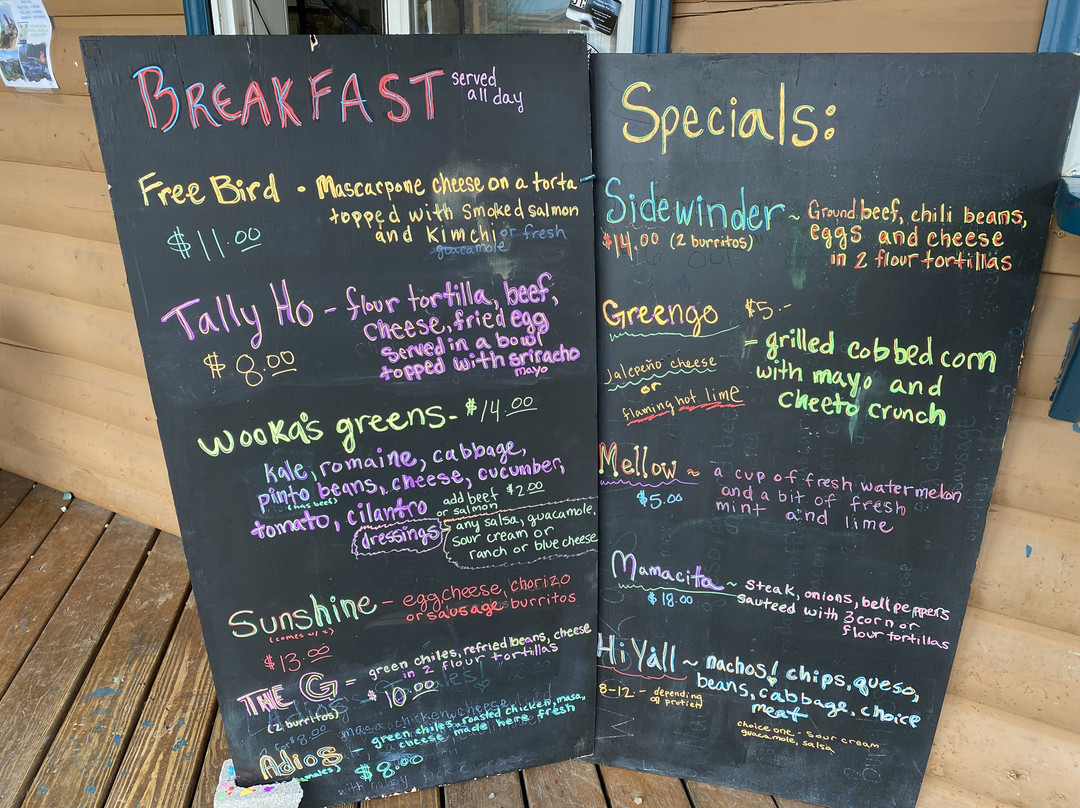 BREAKFAST served
all day
Free Bird • Mascarpone cheese on a torta
topped with Smoked salmon
and Kimchi or fresh
guacamole
$11.00
Tally Ho - flour tortilla, beef,
cheese, fried egg
served in a bowl
topped with sriracho
mayo
$8.00
Wooka's greens - $14.00
kale, romaine, cabbage,
pinto beans, cheese, cucumber,
(has beef)
tomato, cilantro
add beef $2.00
or salmon
dressings
any salsa, guacamole,
sour cream or
ranch or blue cheese
Sunshine - egg cheese, chorizo
or sausage burritos
(comes w/ 2)
$13.00
THE G - green chiles, refried beans, cheese
in 2 flour tortillas
(2 burritos)
$10.00
Adios - green chiles, roasted chicken, masa,
cheese made here fresh
$8.00
Specials:
Sidewinder ~ Ground beef, chili beans,
eggs and cheese
in 2 flour tortillas
$14.00 (2 burritos)
Greengo $5.-
- grilled cobbed corn
with mayo and
cheeto crunch
Jalepeño cheese
or
flaming hot lime
Mellow ~ a cup of fresh watermelon
and a bit of fresh
mint and lime
$5.00
Mamacita ~ steak, onions, bell peppers
sauteed with 3 corn or
flour tortillas
$18.00
Hi Yáll ~ nachos! chips, queso,
beans, cabbage, choice
meat
8-12 - depending
of protien
choice one - sour cream
guacamole, salsa